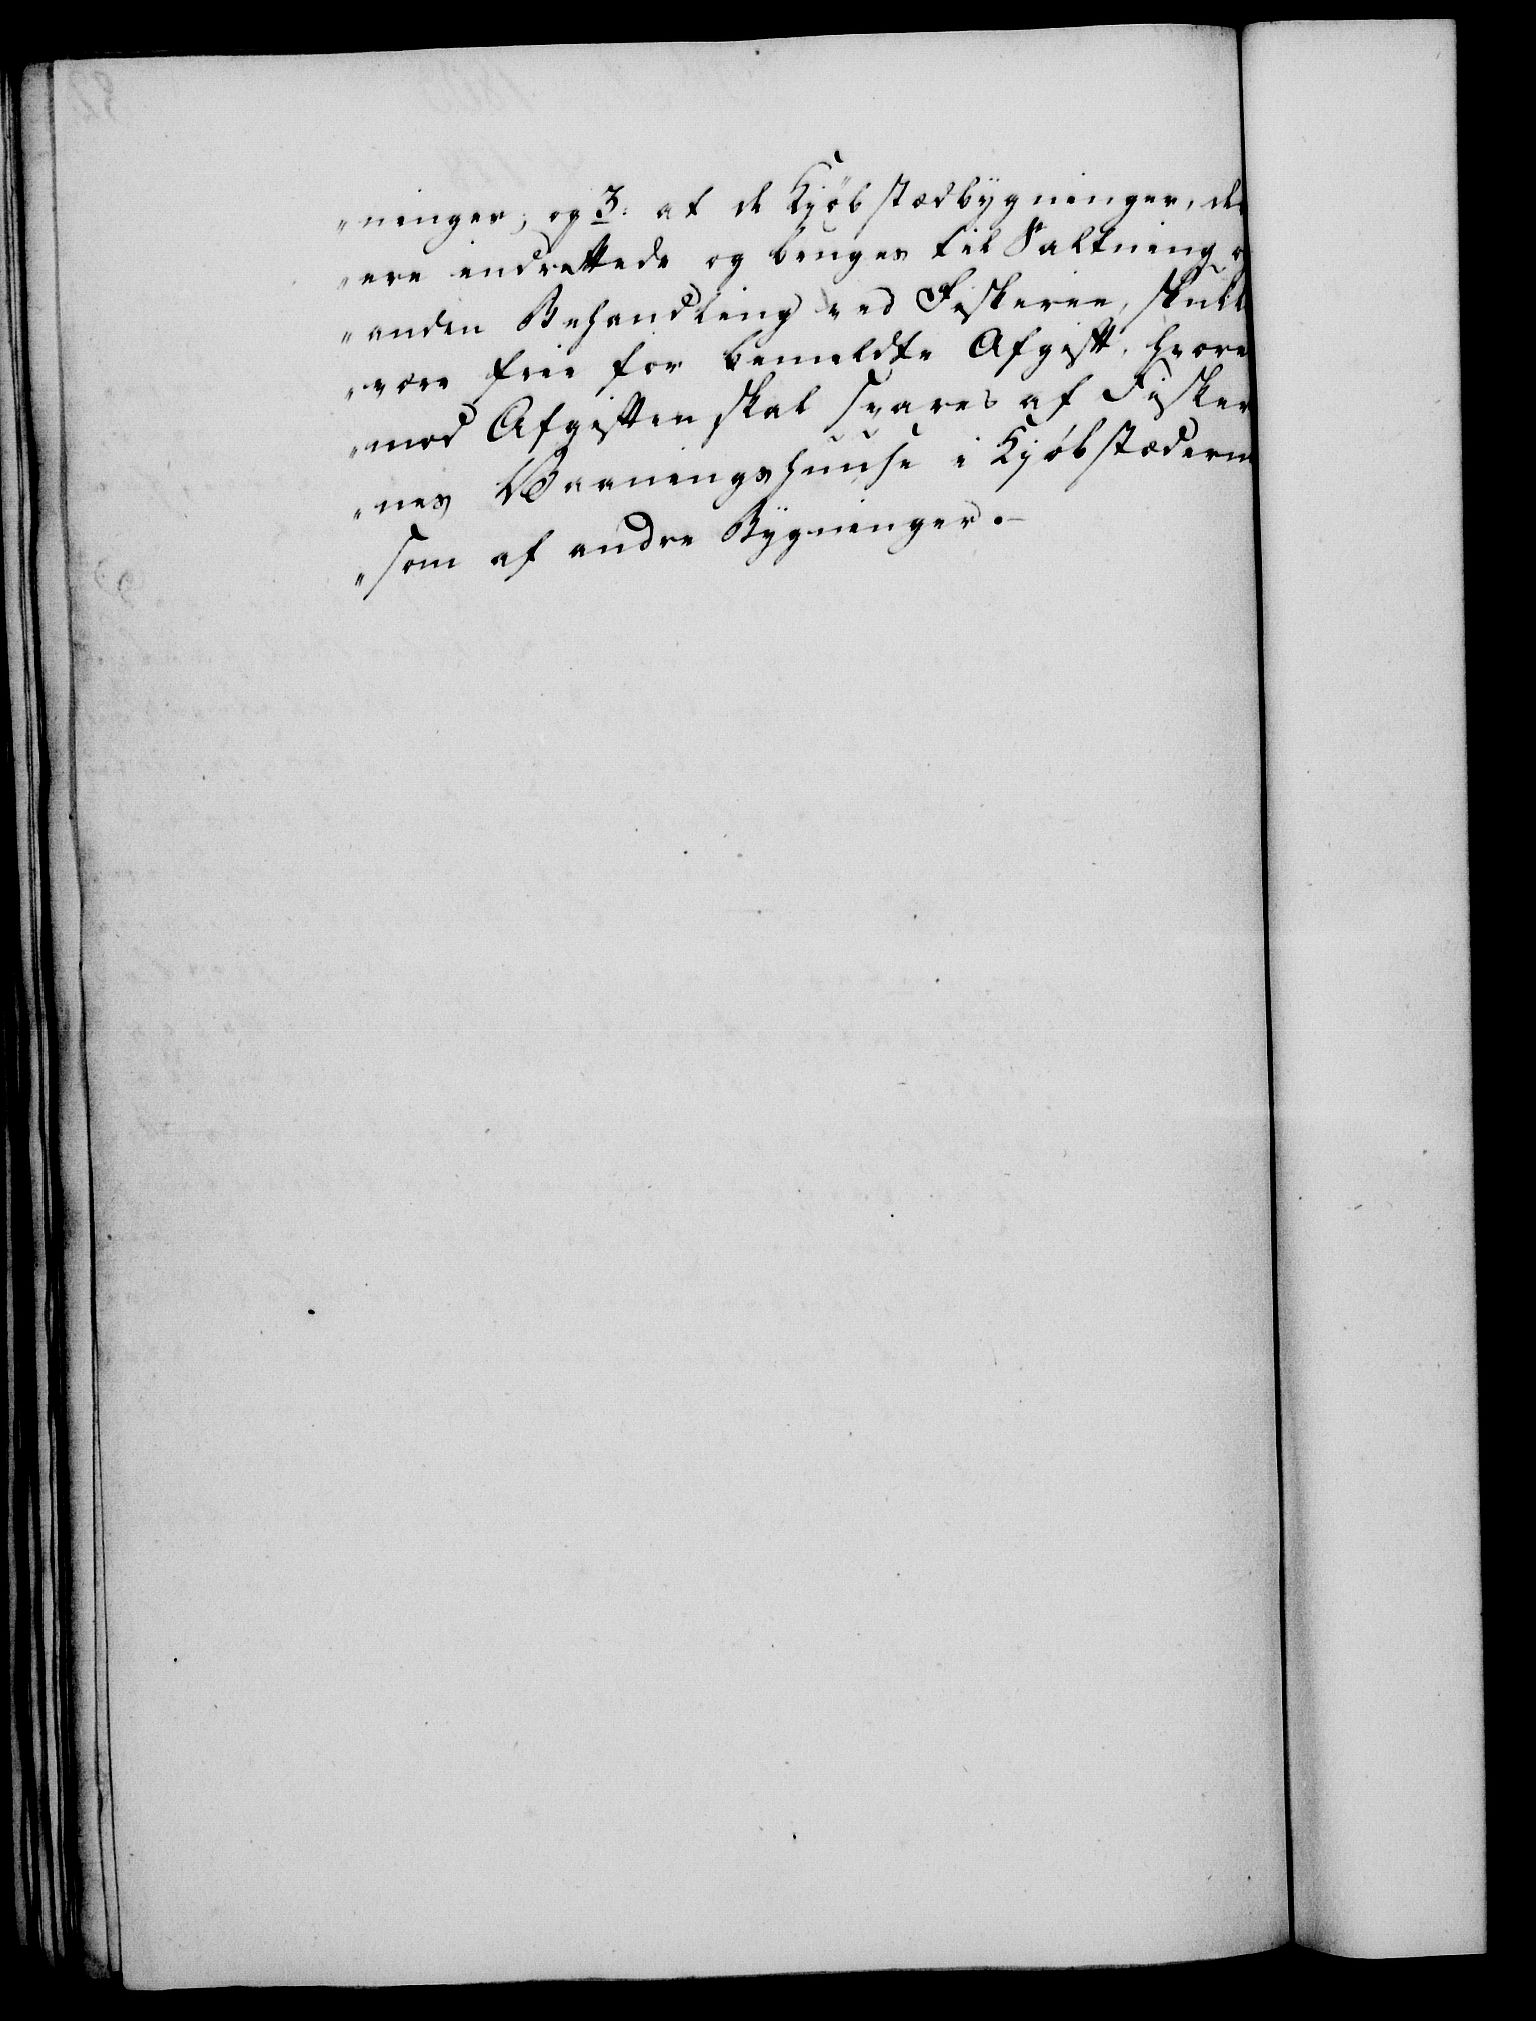 "ninger, og 3: at de Kjöbstædbygninger, de
"ere indrettede og bruges til Saltning og
"anden Behandling ved Fiskerie, skulle
"være frie for bemeldte Afgift, hvore
"mod Afgiften skal svares af Fisker
"nes Vaaningshuuse i Kjöbstæderne
"som af andre Bygninger.-